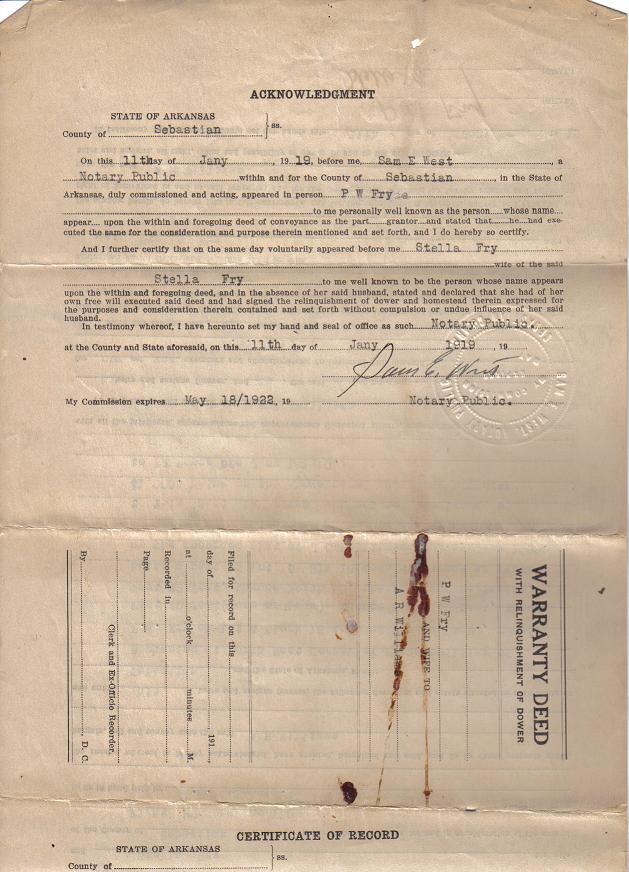 ACKNOWLEDGMENT
STATE OF ARKANSAS
County of Sebastian ss.
On this 11th day of Jany , 19 19, before me, Sam E West , a
Notary Public within and for the County of Sebastian , in the State of
Arkansas, duly commissioned and acting, appeared in person P W Fry
to me personally well known as the person whose name
appear upon the within and foregoing deed of conveyance as the part grantor and stated that he had exe-
cuted the same for the consideration and purpose therein mentioned and set forth, and I do hereby so certify.
And I further certify that on the same day voluntarily appeared before me Stella Fry
wife of the said
Stella Fry to me well known to be the person whose name appears
upon the within and foregoing deed, and in the absence of her said husband, stated and declared that she had of her
own free will executed said deed and had signed the relinquishment of dower and homestead therein expressed for
the purposes and consideration therein contained and set forth without compulsion or undue influence of her said
husband.
In testimony whereof, I have hereunto set my hand and seal of office as such Notary Public.
at the County and State aforesaid, on this 11th day of Jany 1919 , 19
Sam E. West
My Commission expires May 18/1922 , 19 Notary Public.
WARRANTY DEED
WITH RELINQUISHMENT OF DOWER
P W Fry
AND WIFE TO
A R
Filed for record on this
day of 191
at o'clock minutes M.
Recorded in
Page
Clerk and Ex-Officio Recorder.
By D. C.
CERTIFICATE OF RECORD
STATE OF ARKANSAS
County of ss.